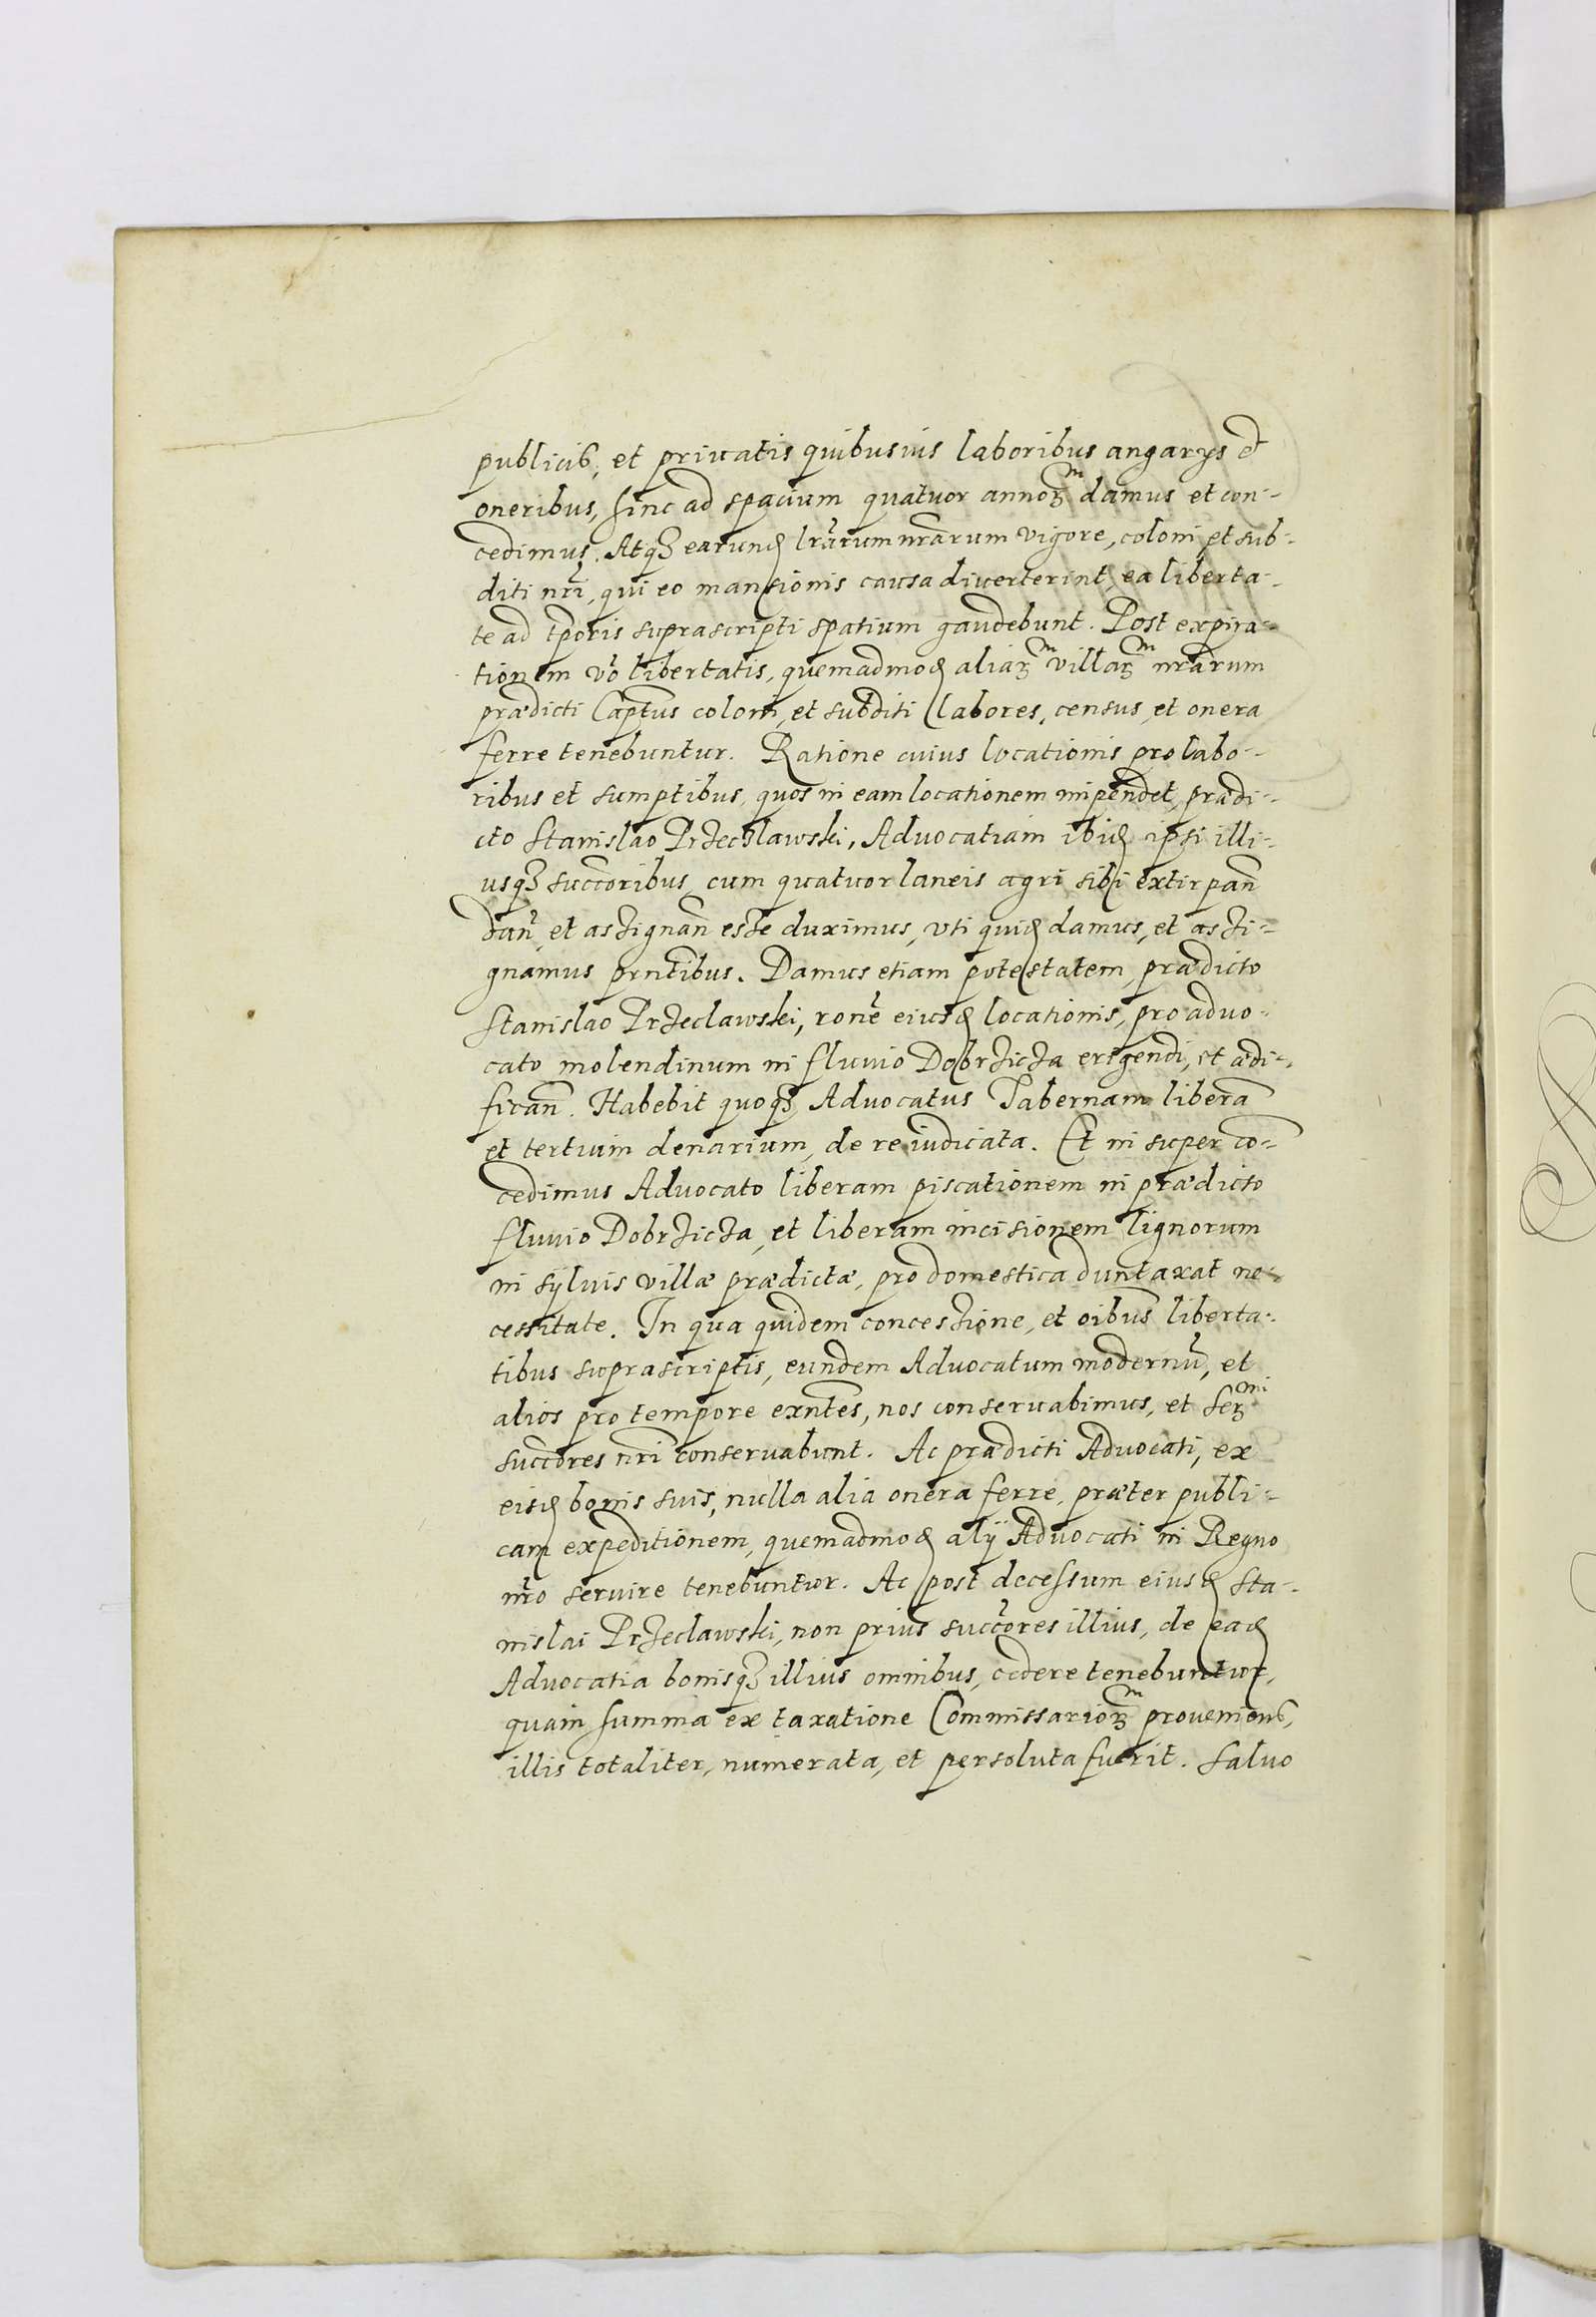 publicis, et priuatis quibusuis laboribus angarys et
oneribus, hinc ad spacium quatuor annoꝝm damus et con-
cedimus. Atqꝫ earund lrārum nrārum vigore, coloni et sub-
diti nrī, qui eo mansionis causa diuerterint, ea liberta-
te ad tporis suprascripti spatium gaudebunt. Post expira-
tionem vō libertatis, quemadmod aliaꝝm villaꝝm nrārum
prædicti Captus coloni, et subditi labores, census, et onera
ferre tenebuntur. Ratione cuius locationis pro labo-
ribus et sumptibus, quos in eam locationem impendet, prædi-
cto Stanislao Przeczlawski, Advocatiam ibid ipsi illi-
usqꝫ succoribus, cum quatuor laneis agri sibi extirpan̄
dan̄, et assignan̄ esse duximus, vti quid damus, et assi-
gnamus prntibus. Damus etiam potestatem, prædicto
Stanislao Przeclawski, ronē eiusd locationis, pro advo-
cato molendinum in fluuio Dobrzicza erigendi, et ædi-
fican̄. Habebit quoqꝫ Advocatus Tabernam liberā
et tertium denarium, de re iudicata. Et in super cō-
cedimus Advocato liberam piscationem in prædicto
fluuio Dobrzicza, et liberam incisionem lignorum
in syluis villæ prædictæ, pro domestica duntaxat ne-
cessitate. In qua quidem concessione, et oibus liberta-
tibus suprascriptis, eundem Advocatum modernū, et
alios pro tempore exntes, nos conseruabimus, et Serꝫmi
succores nrī conseruabunt. Ac prædicti Advocati, ex
eisd bonis suis, nulla alia onera ferre, præter publi-
cam expeditionem, quemadmod alij Advocati in Regno
nrō seruire tenebuntur. Ac post decessum eiusd Sta-
nislai Przeclawski, non prius succores illius, de ead
Advocatia bonisqꝫ illius omnibus, cedere tenebuntur,
quam summa ex taxatione Commissarioꝝm proueniens,
illis totaliter, numerata, et persoluta fuerit. Saluo